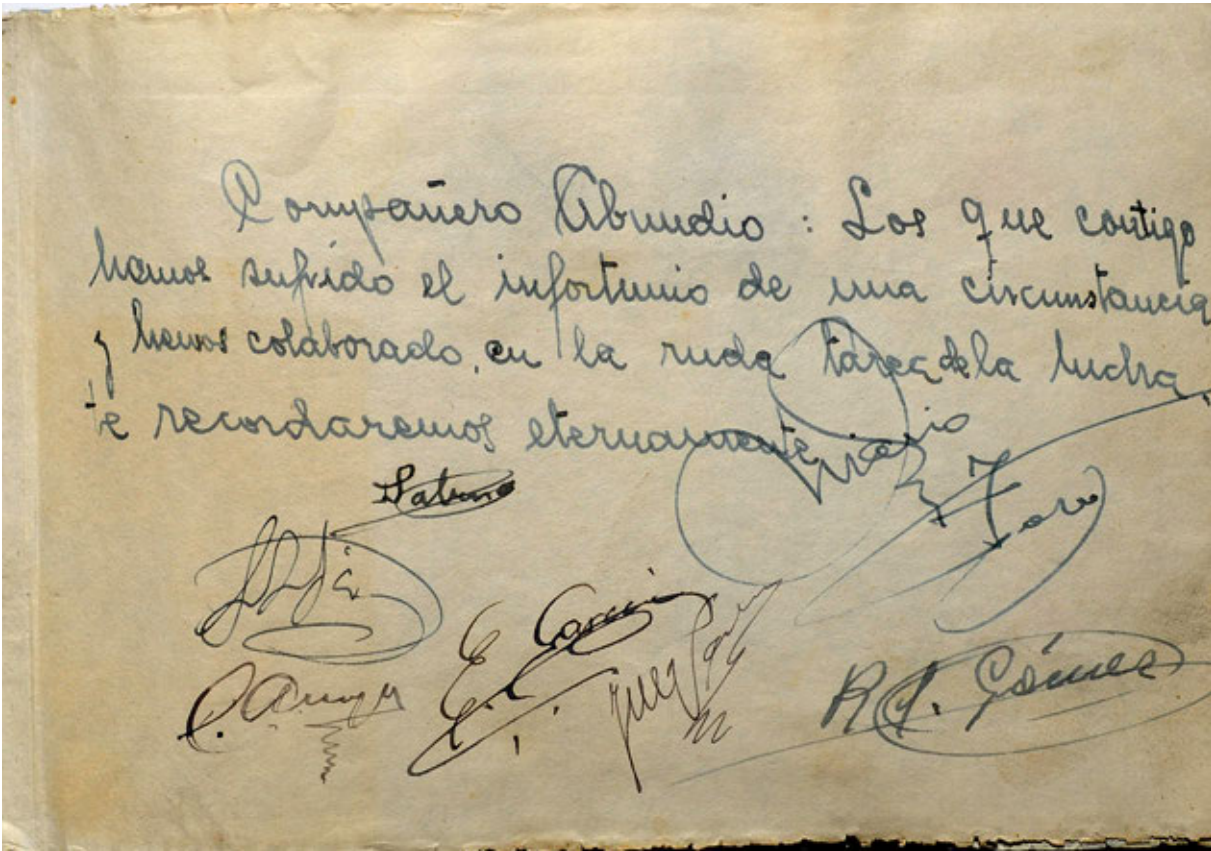 Compañero Abundio : Los que contigo
hemos sufrido el infortunio de una circunstancia
y hemos colaborado, en la ruda tarea de la lucha,
te recordaremos eternamente
E. García
R. Gómez